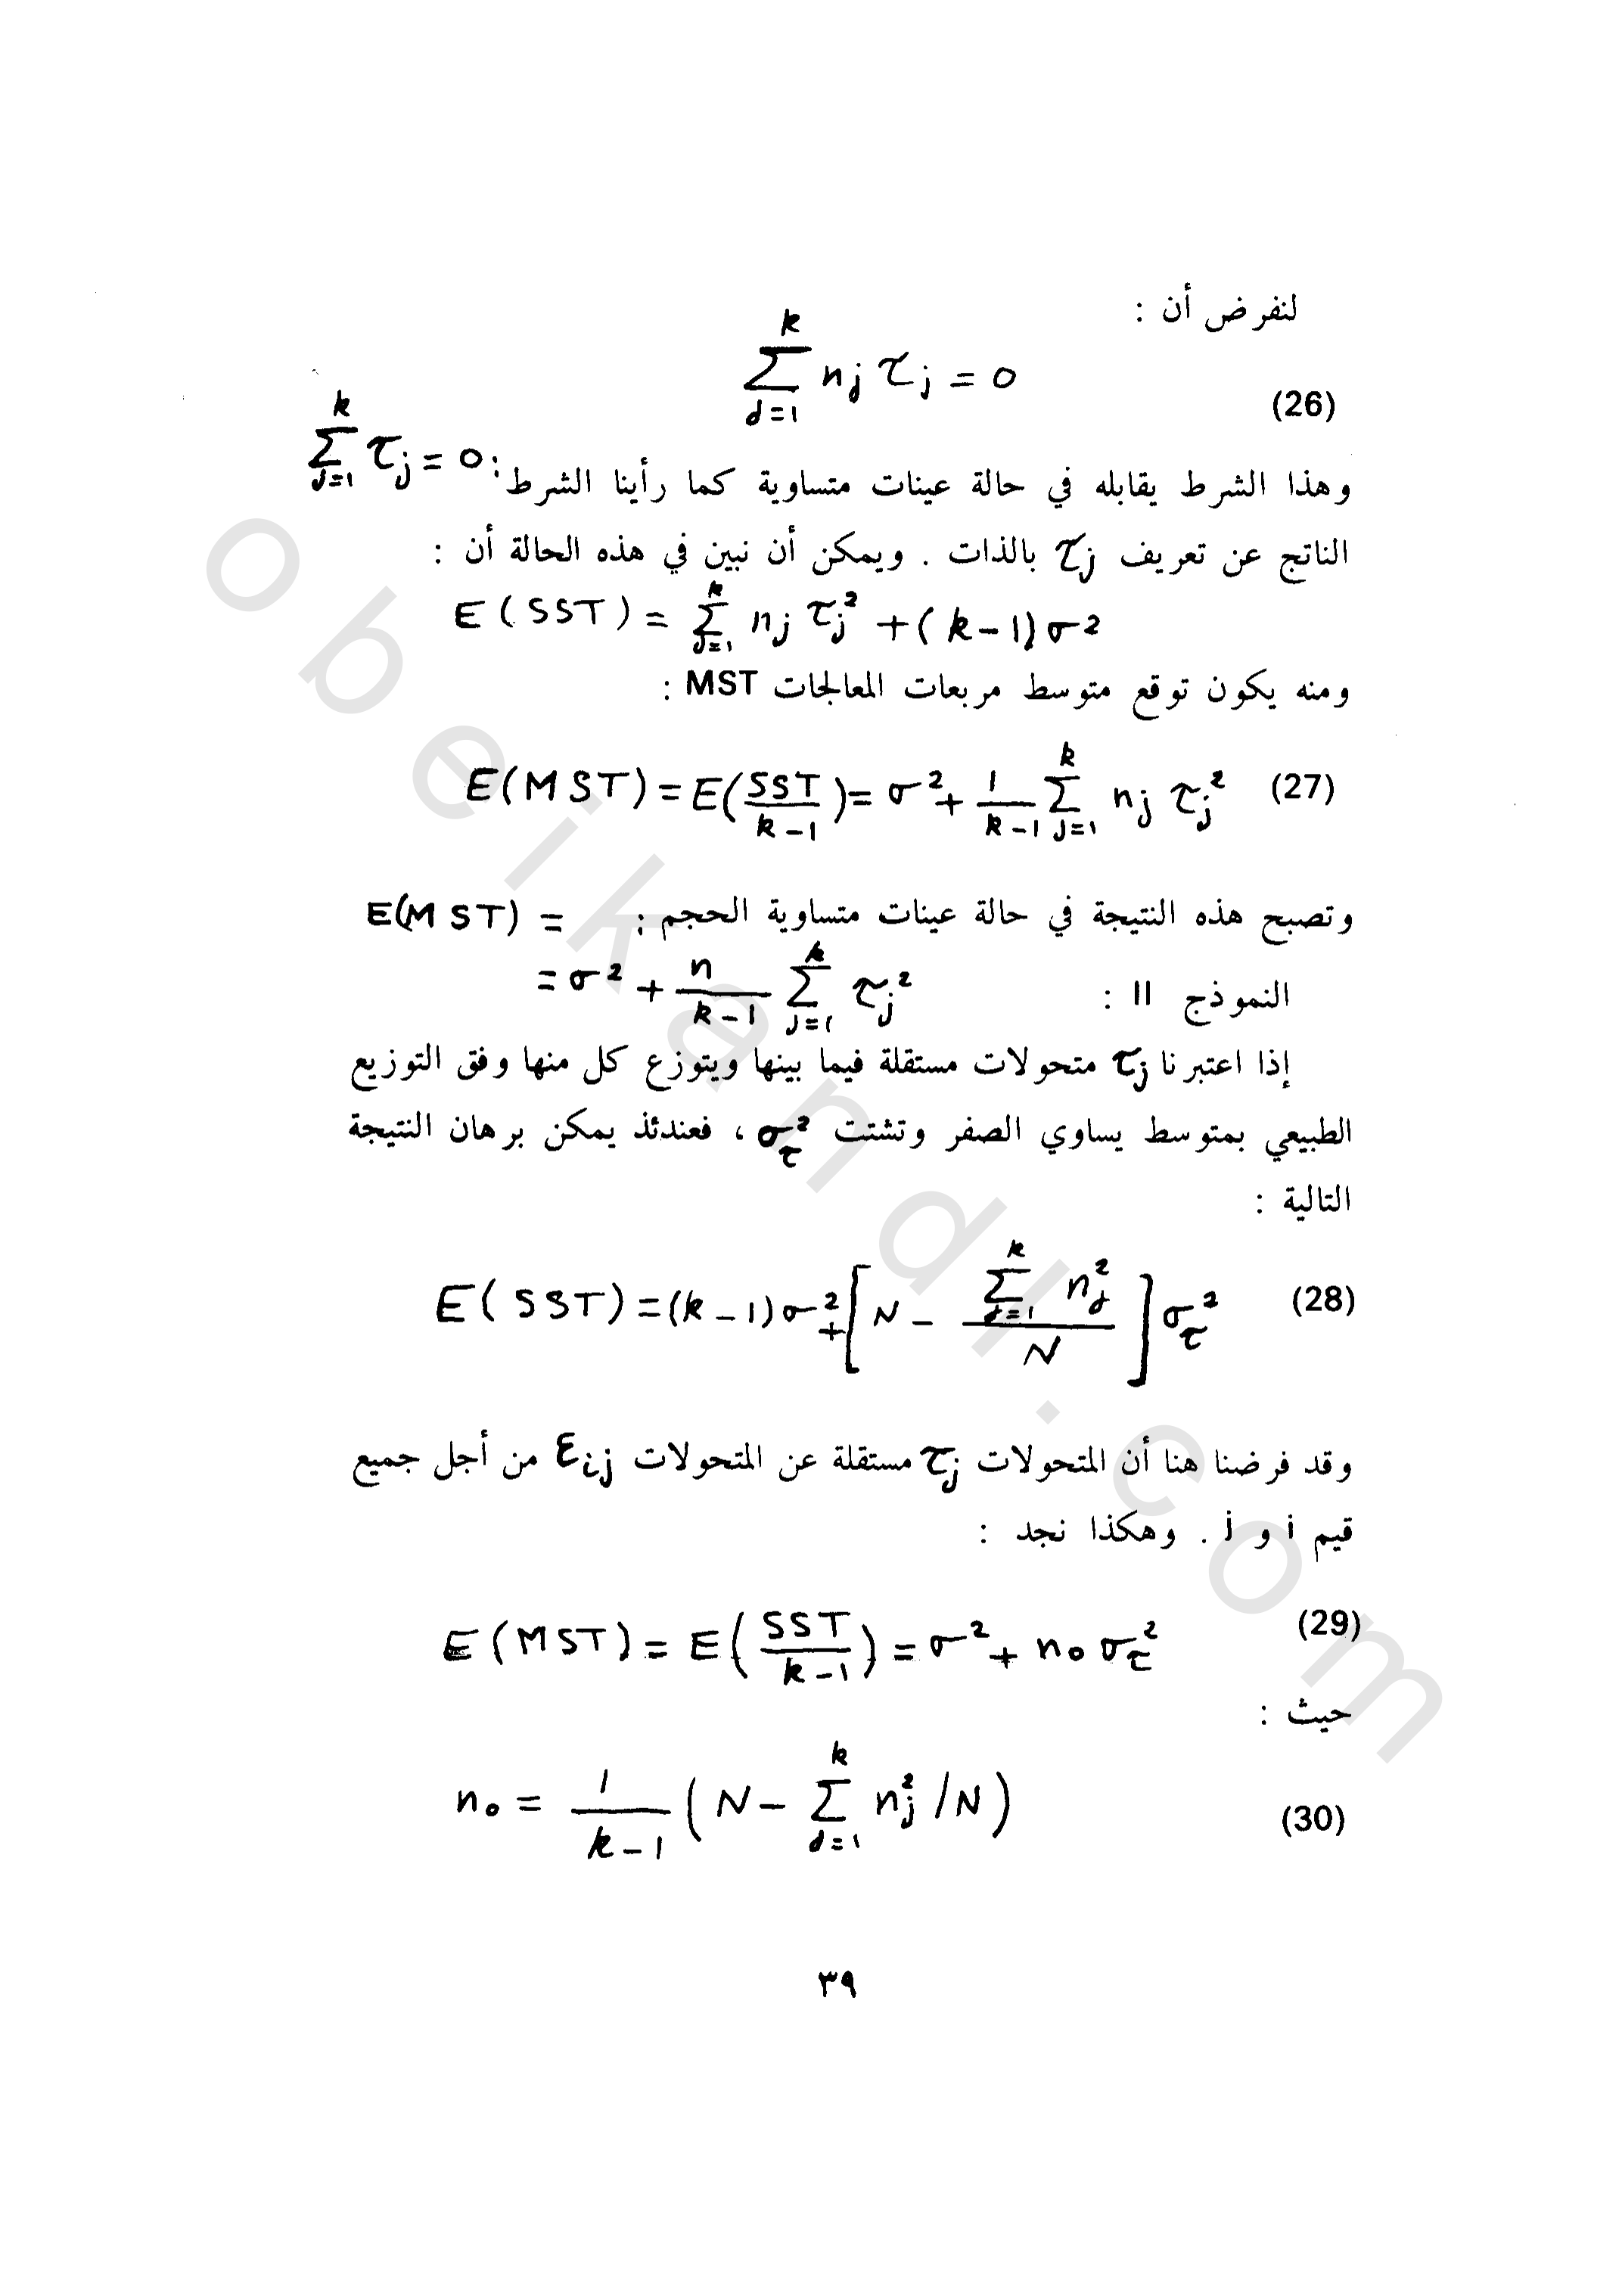 لنفرض أن :
\sum_{j=1}^{k} n_j τ_j = 0 (26)
وهذا الشرط يقابله في حالة عينات متساوية كما رأينا الشرط : \sum_{j=1}^{k} τ_j = 0
الناتج عن تعريف τ_j بالذات . ويمكن أن نبين في هذه الحالة أن :
E(SST) = \sum_{j=1}^{k} n_j τ_j^2 + (k-1)σ^2
ومنه يكون توقع متوسط مربعات المعالجات MST :
E(MST) = E(\frac{SST}{k-1}) = σ^2 + \frac{1}{k-1} \sum_{j=1}^{k} n_j τ_j^2 (27)
وتصبح هذه النتيجة في حالة عينات متساوية الحجم : E(MST) =
= σ^2 + \frac{n}{k-1} \sum_{j=1}^{k} τ_j^2
النموذج II :
إذا اعتبرنا τ_j متحولات مستقلة فيما بينها ويتوزع كل منها وفق التوزيع
الطبيعي بمتوسط يساوي الصفر وتشتت σ_τ^2 ، فعندئذ يمكن برهان النتيجة
التالية :
E(SST) = (k-1)σ^2 + [N - \frac{\sum_{j=1}^{k} n_j^2}{N}] σ_τ^2 (28)
وقد فرضنا هنا أن المتحولات τ_j مستقلة عن المتحولات ε_{ij} من أجل جميع
قيم i و j . وهكذا نجد :
E(MST) = E(\frac{SST}{k-1}) = σ^2 + n_0 σ_τ^2 (29)
حيث :
n_0 = \frac{1}{k-1} (N - \sum_{j=1}^{k} n_j^2 /N) (30)
٣٩
obeikandl.com